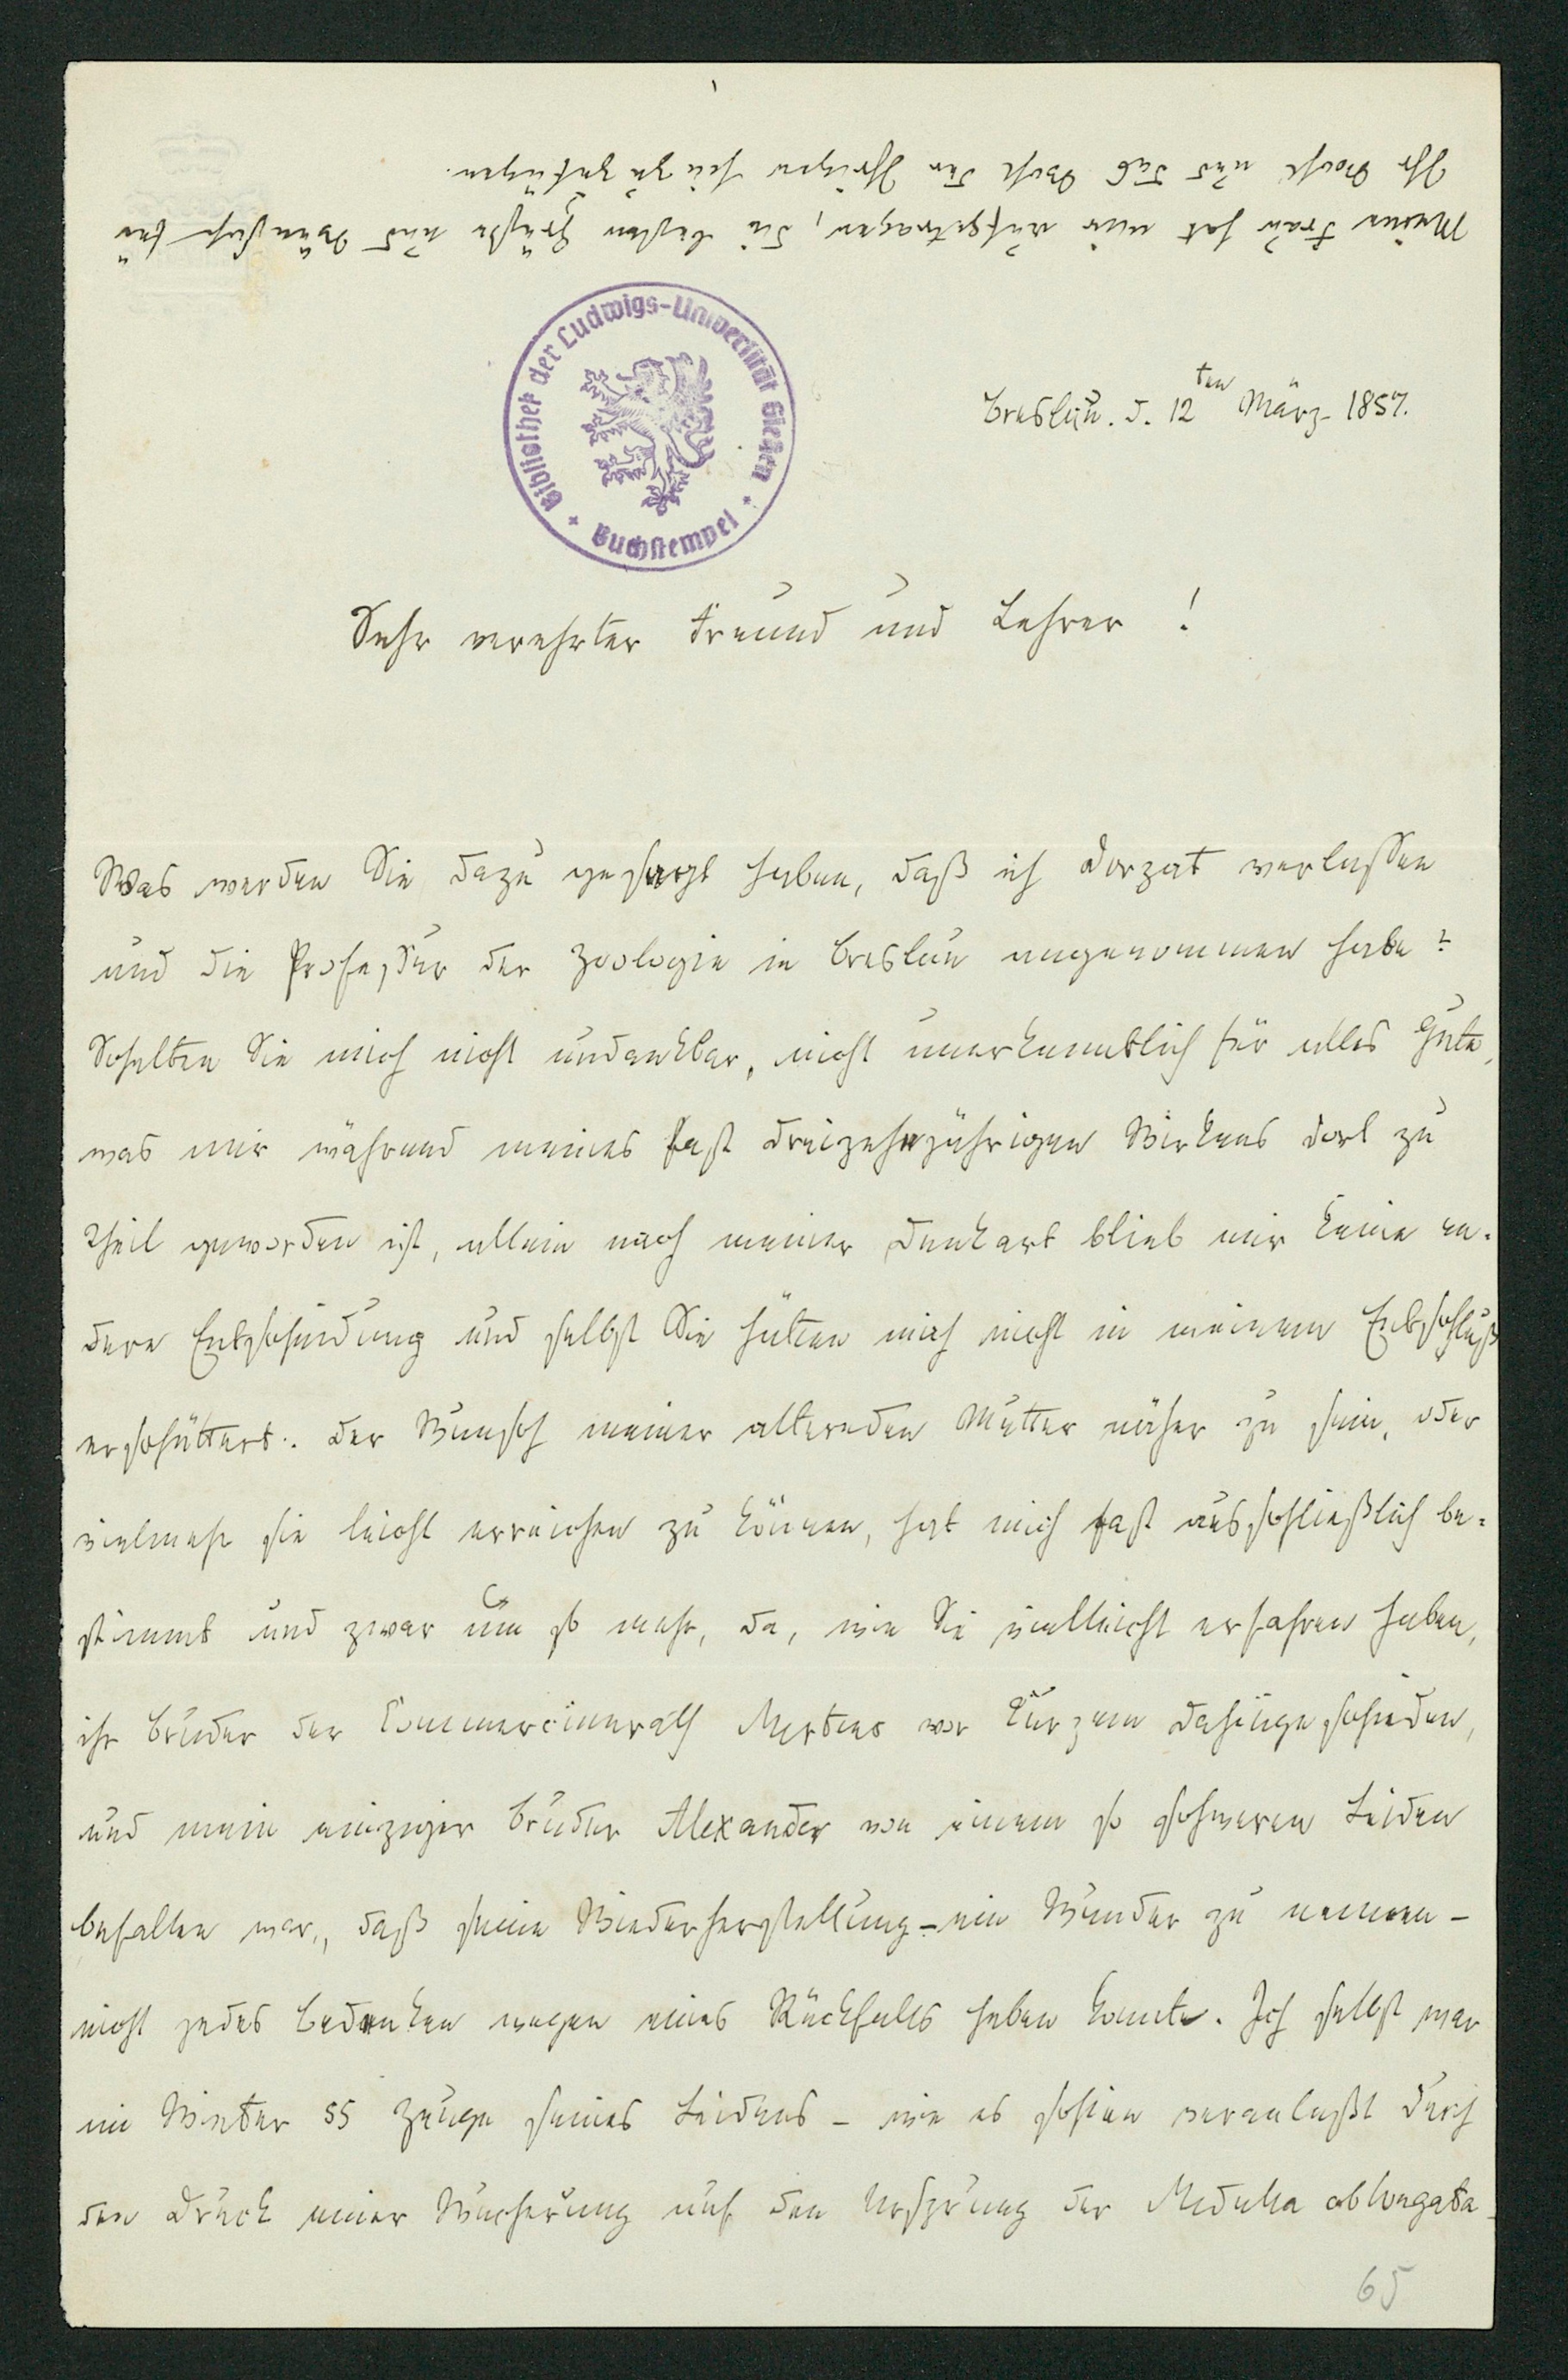 Meine Frau hat mir aufgetragen, die besten Grüße und Wünsche für
Ihr Wohl und das Wohl der Ihrigen hinzuzufügen.
Bibliothek der Ludwigs-Universität Gießen
Buchstempel
Breslau. d. 12ten März 1857.
Sehr verehrter Freund und Lehrer!
Was werden Sie dazu gesagt haben, daß ich Dorpat verlassen
und die Professur der Zoologie in Breslau angenommen habe?
Schelten Sie mich nicht undankbar, nicht unerkenntlich für alles Gute,
was mir während meines fast dreizehnjährigen Wirkens dort zu
Theil geworden ist, allein nach meiner Denkart blieb mir keine an-
dere Entscheidung und selbst Sie hätten mich nicht in meinem Entschluß
erschüttert. Der Wunsch meiner alternden Mutter näher zu sein, oder
vielmehr sie leicht erreichen zu können, hat mich fast ausschließlich be-
stimmt und zwar um so mehr, da, wie Sie vielleicht erfahren haben,
ihr Bruder der Commercienrath Mertens vor Kurzem dahingeschieden,
und mein einziger Bruder Alexander von einem so schweren Leiden
befallen war, daß seine Wiederherstellung - ein Wunder zu nennen -
nicht jedes Bedenken wegen eines Rückfalls heben konnte. Ich selbst war
im Winter 55 Zeuge seines Leidens - wie es schien veranlaßt durch
den Druck einer Wucherung auf den Ursprung der Medulla oblongata
65